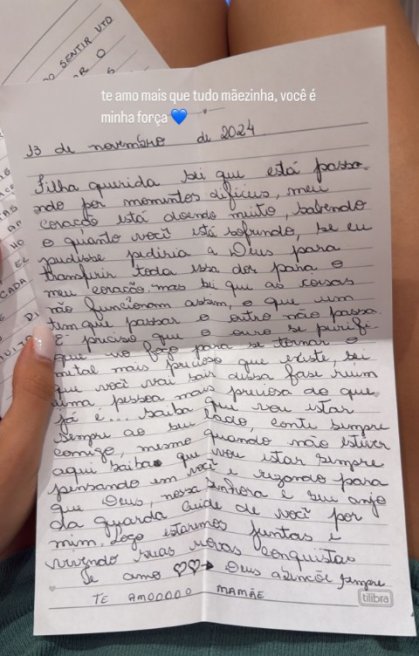 SENTIR UTO
te amo mais que tudo mãezinha, você é
minha força 💙
13 de novembro de 2024
Filha querida sei que está passa-
ndo por momentos difíceis, meu
coração está doendo muito, sabendo
o quanto você está sofrendo, se eu
pudisse pediria a Deus para
transferir toda essa dor para o
meu coração, mas sei que as coisas
não funcionam assim, o que um
tem que passar o outro não passa.
É preciso que o ouro se purifi-
que no fogo para se tornar o
metal mais precioso que existe, sei
que você vai sair dessa fase ruim
uma pessoa mais preciosa do que
já é... saiba que vou estar
sempre ao seu lado, conte sempre
comigo, mesmo quando não estiver
aqui saiba que vou estar sempre
pensando em você e rezando para
que Deus, nossa senhora e seu anjo
da guarda cuide de você por
mim, logo estaremos juntas e
vivendo suas novas conquistas
te amo ♡♡→ Deus abençoe sempre
TE AMOOOOO MAMÃE
tilibra